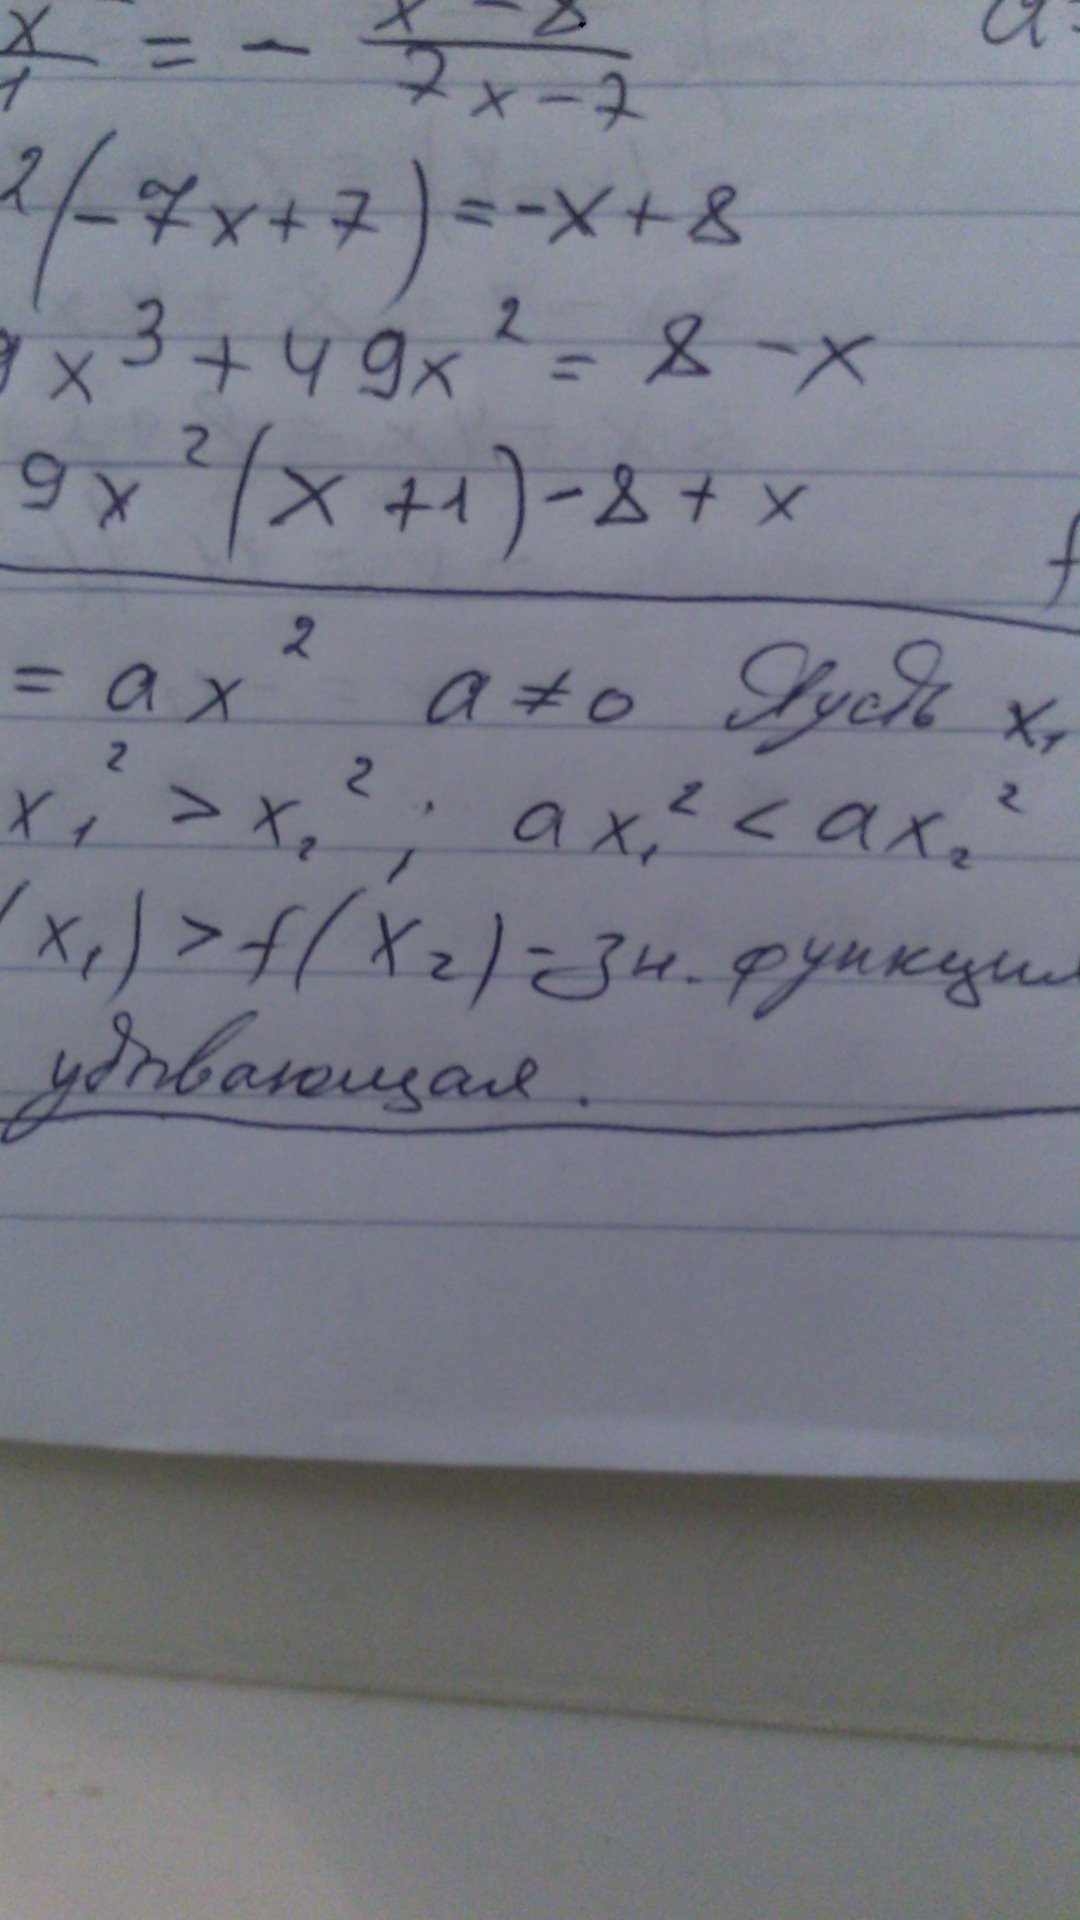 x/1 = - (x-8)/(7x-7)
a=
²(-7x+7)=-x+8
9x³+49x²=8-x
9x²(x+1)-8+x
f
= ax² a≠0 Пусть x₁
x₁²>x₂²; ax₁²<ax₂²
(x₁)>f(x₂)-Зн. функция
убывающая.